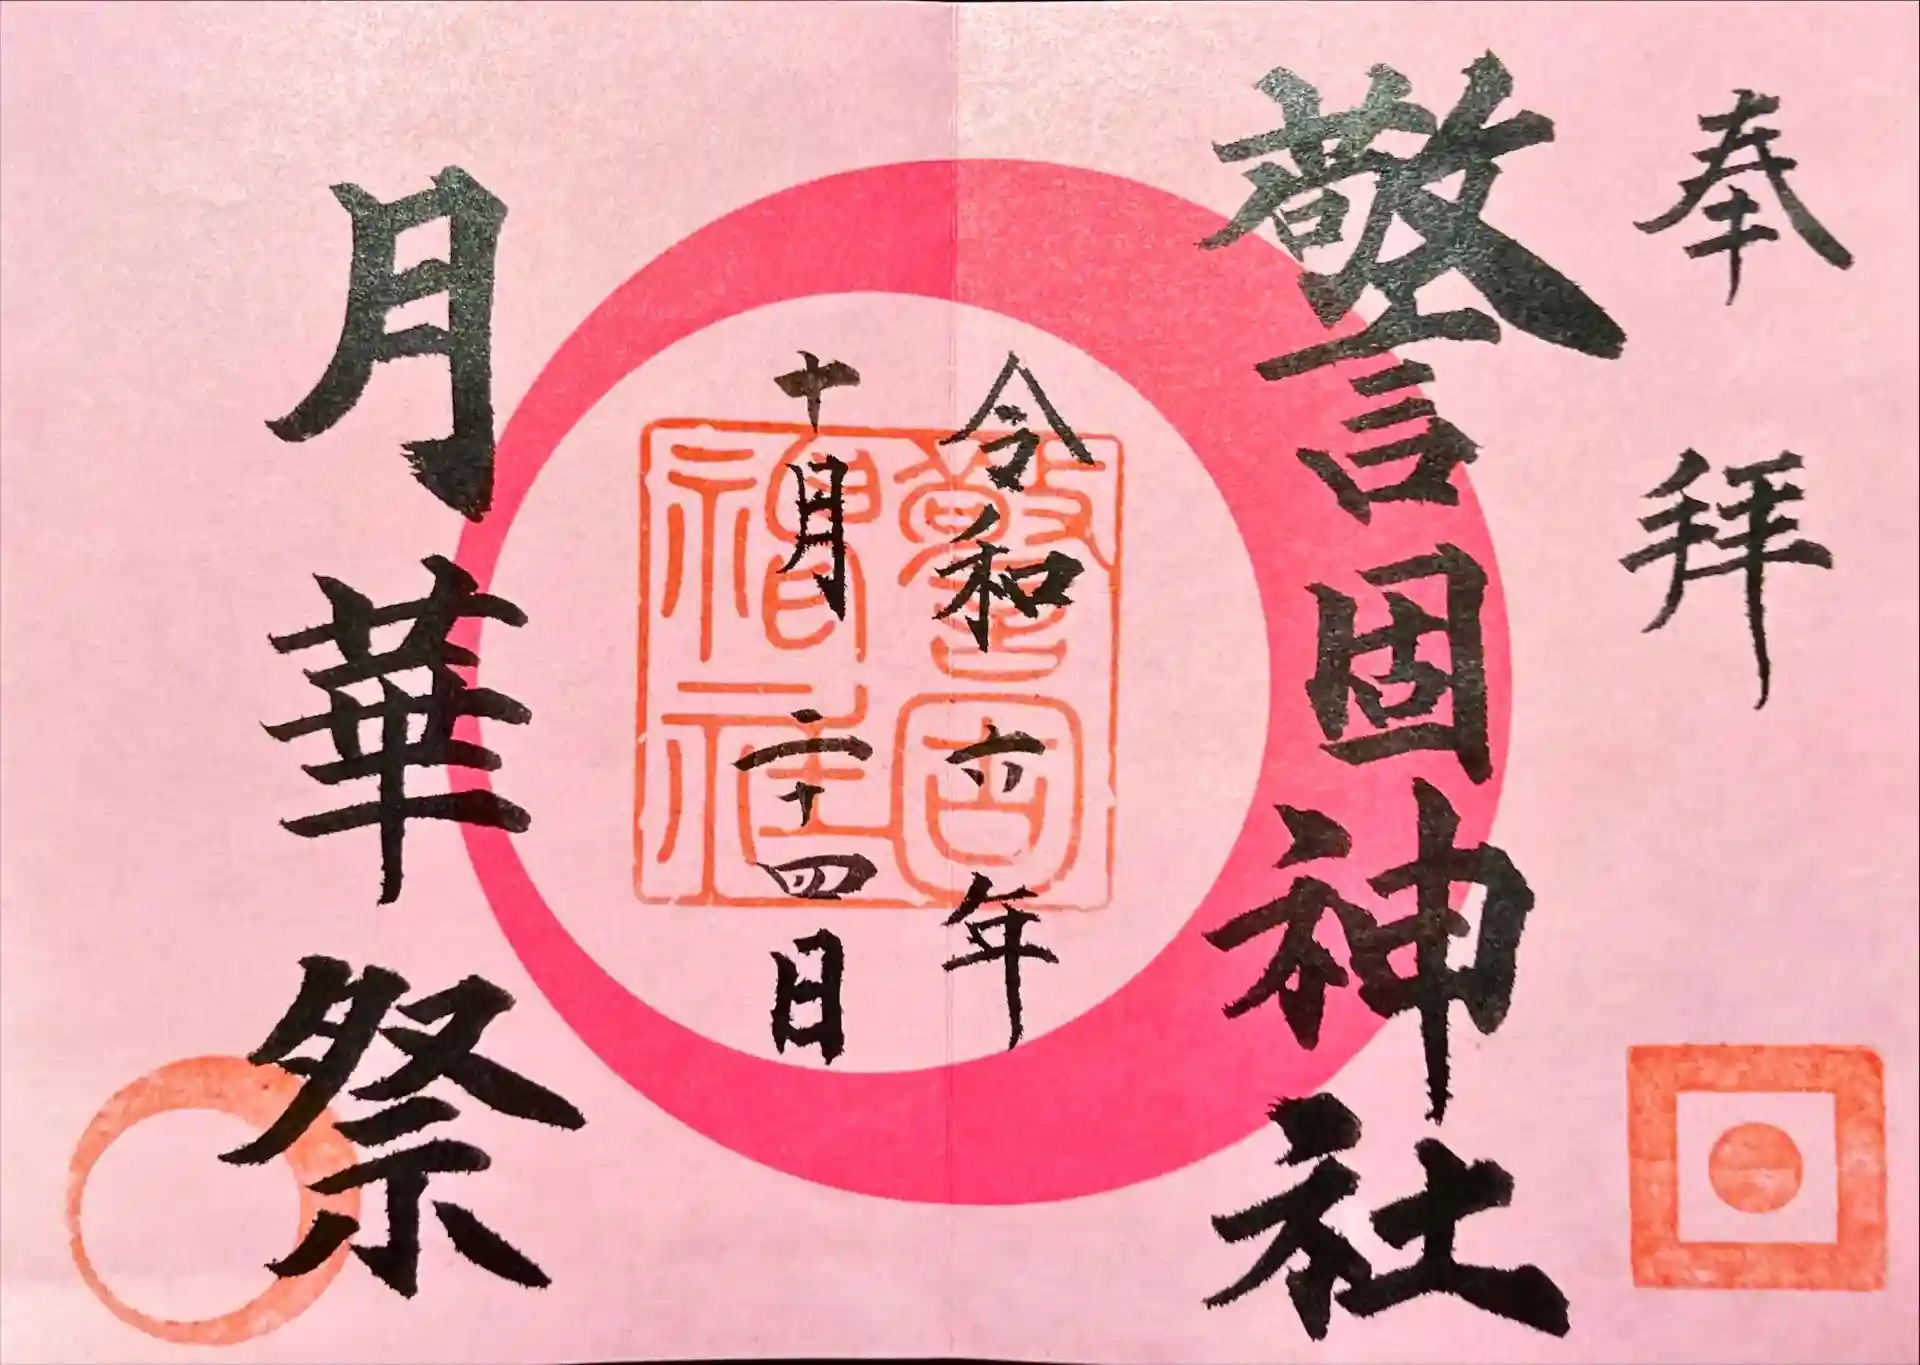 奉拝
警固神社
令和六年
十月二十四日
警固
神社
月華祭